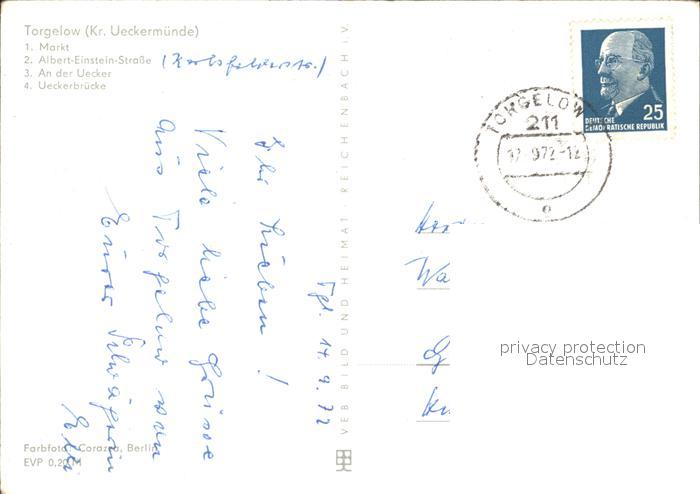 Torgelow (Kr. Ueckermünde)
1. Markt
2. Albert-Einstein-Straße
3. An der Uecker
4. Ueckerbrücke
Tgl. 14. 9. 72
Ihr Lieben!
Viele liebe Grüsse
aus Torgelow von
Eurer Schwägerin
Farbfoto: Corazza, Berlin
EVP 0,20 M
VEB BILD UND HEIMAT · REICHENBACH i. V.
25
DEUTSCHE
DEMOKRATISCHE REPUBLIK
TORGELOW
211
9.72-12
privacy protection
Datenschutz